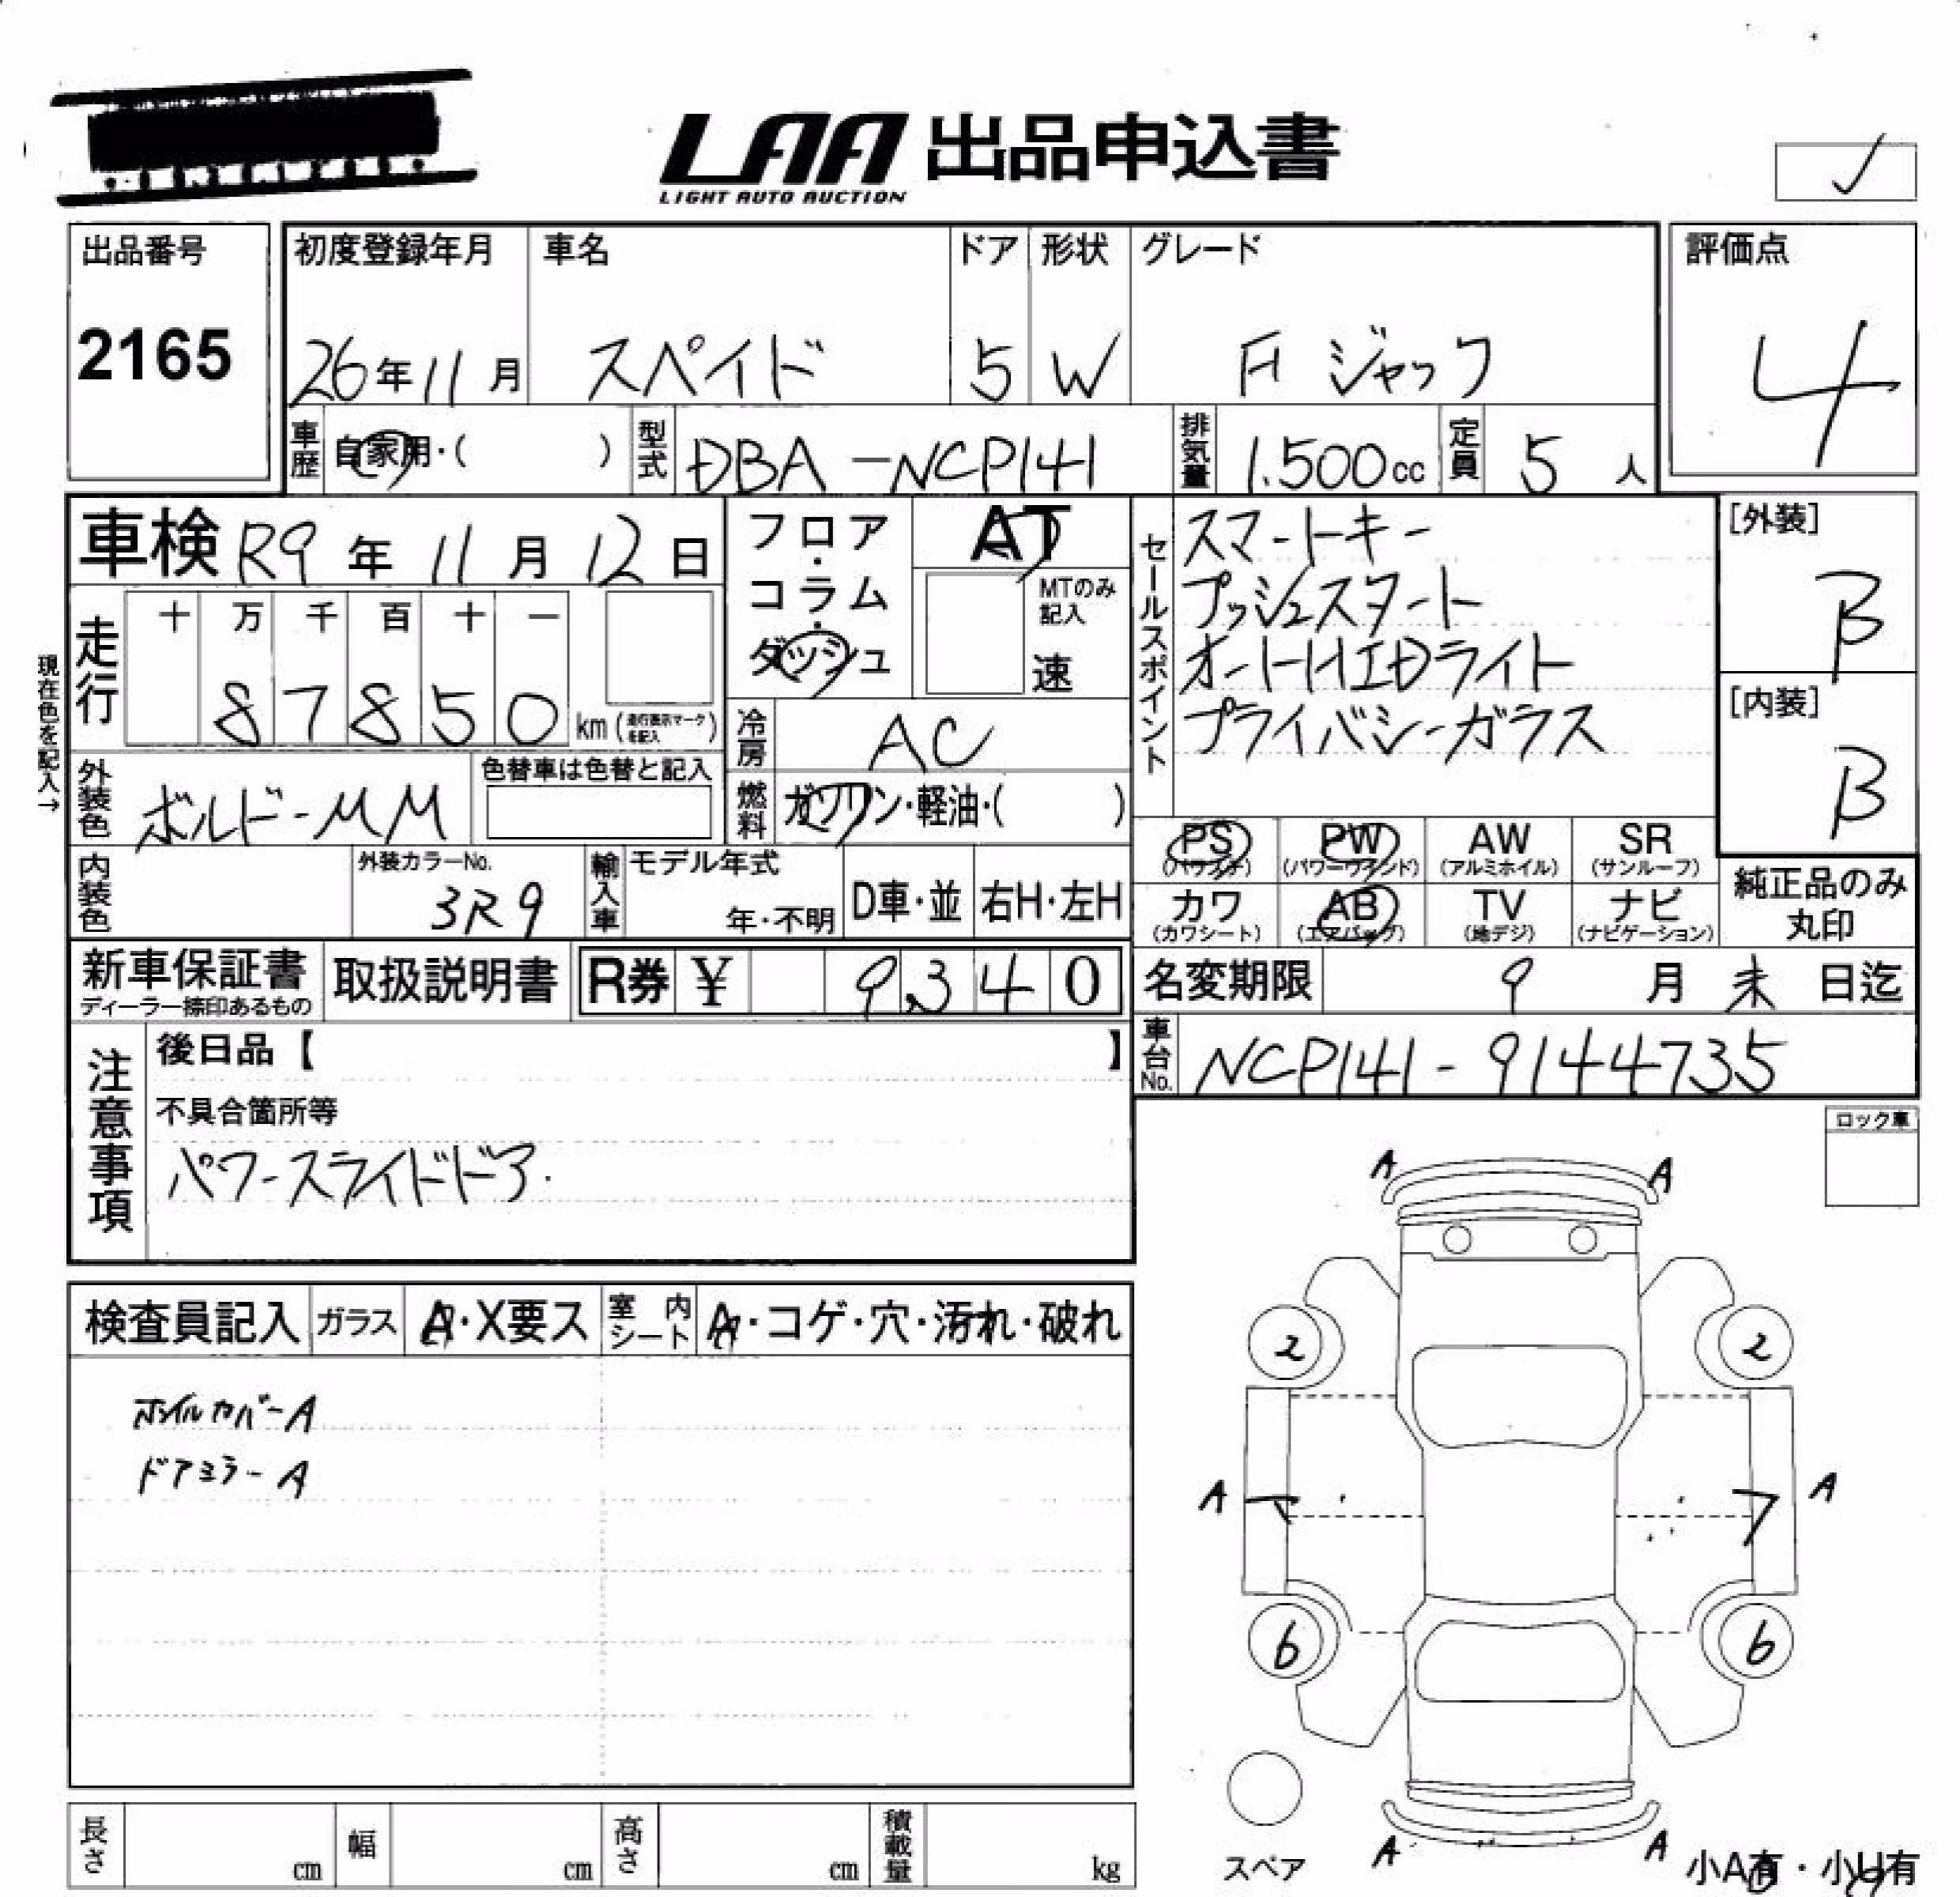 LAA 出品申込書
LIGHT AUTO AUCTION
出品番号
2165
初度登録年月
26年11月
車名
スペイド
ドア
5
形状
W
グレード
F ジャック
評価点
4
車歴
自家用・( )
型式
DBA-NCP141
排気量
1.500cc
定員
5人
車検 R9年11月12日
フロア・コラム・ダッシュ
AT
MTのみ記入
速
セールスポイント
スマートキー
プッシュスタート
オートHIDライト
プライバシーガラス
[外装]
B
[内装]
B
現在色を記入→
走行
十 万 千 百 十 一
87850 km (走行表示マークを記入)
冷房
AC
外装色
ボルドーMM
色替車は色替と記入
燃料
ガソリン・軽油・( )
PS
(パワステ)
PW
(パワーウインド)
AW
(アルミホイル)
SR
(サンルーフ)
カワ
(カワシート)
AB
(エアバッグ)
TV
(地デジ)
ナビ
(ナビゲーション)
純正品のみ
丸印
内装色
外装カラーNo.
3R9
輸入車
モデル年式
年・不明
D車・並
右H・左H
新車保証書
ディーラー捺印あるもの
取扱説明書
R券 ¥ 9,340
名変期限
9月末日迄
車台No.
NCP141-9144735
注意事項
後日品【 】
不具合箇所等
パワースライドドア.
ロック車
検査員記入
ガラス
A・X要ス
室内シート
A・コゲ・穴・汚れ・破れ
ホイルカバーA
ドアミラーA
A
A
2
2
A
A
6
6
A
A
スペア
小A有・小U有
長さ
cm
幅
cm
高さ
cm
積載量
kg